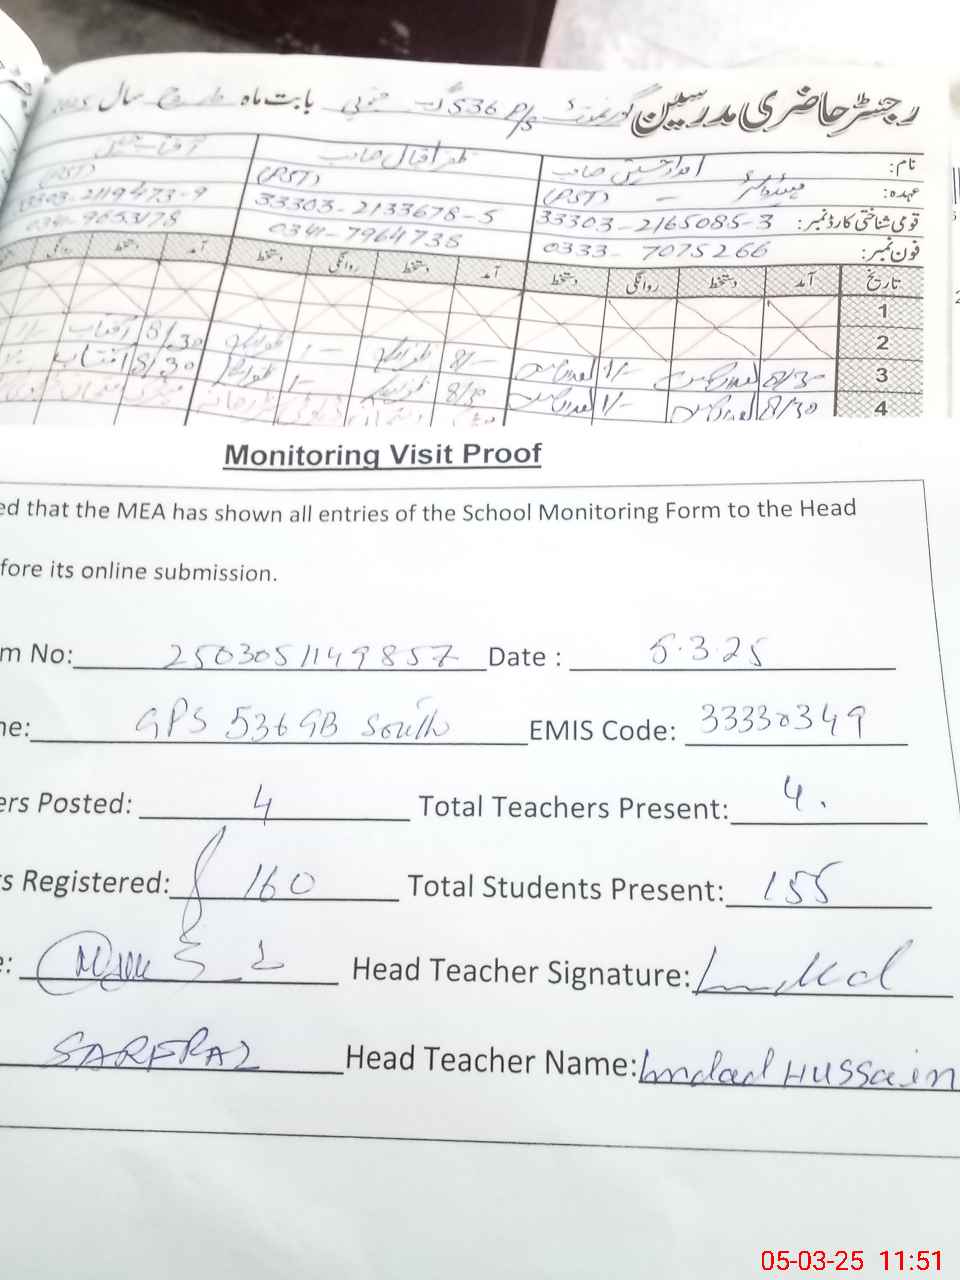 رجسٹر حاضری مدرسین گورنمنٹ P/S 536 گ ب جنوبی بابت ماہ مارچ سال 2025
نام: امداد حسین صاحب ظفر اقبال صاحب
عہدہ: ہیڈ ٹیچر (PST) (PST) (PST)
قومی شناختی کارڈ نمبر: 33303-2165085-3 33303-2133678-5 33303-2119473-9
فون نمبر: 0333-7075266 0341-7964738
تاریخ آمد دستخط روانگی دستخط آمد دستخط روانگی دستخط آمد دستخط روانگی
1
2
3 8/30 1/- 8/- 1/- 8/30
4 8/30 1/- 8/30 1/- 8/30
Monitoring Visit Proof
ed that the MEA has shown all entries of the School Monitoring Form to the Head
fore its online submission.
m No: 2503051149857 Date : 5.3.25
ne: GPS 536 GB South EMIS Code: 33330349
ers Posted: 4 Total Teachers Present: 4.
s Registered: 160 Total Students Present: 155
e: Head Teacher Signature:
SARFRAZ Head Teacher Name: Imdad HUSSain
05-03-25 11:51